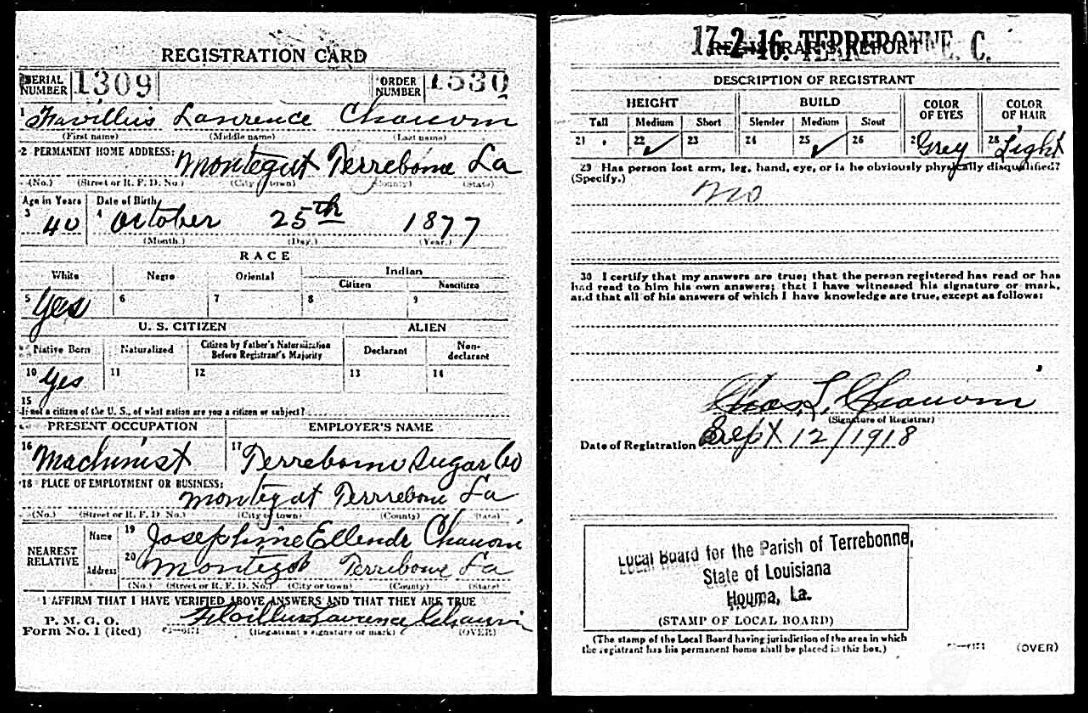 REGISTRATION CARD
SERIAL NUMBER 1309 ORDER NUMBER 1530
1 Favillius Lawrence Chauvin
(First name) (Middle name) (Last name)
2 PERMANENT HOME ADDRESS: Montegut Terrebone La
(No.) (Street or R. F. D. No.) (City or town) (County) (State)
Age in Years Date of Birth
3 40 4 October 25th 1877
(Month.) (Day.) (Year.)
RACE
White Negro Oriental Indian
Citizen Noncitizen
5 Yes 6 7 8 9
U. S. CITIZEN ALIEN
Native Born Naturalized Citizen by Father's Naturalization Before Registrant's Majority Declarant Non-declarant
10 Yes 11 12 13 14
15
If not a citizen of the U. S., of what nation are you a citizen or subject?
PRESENT OCCUPATION EMPLOYER'S NAME
16 Machinist 17 Terrebonne Sugar Co
18 PLACE OF EMPLOYMENT OR BUSINESS:
Montegut Terrrebone La
(No.) (Street or R. F. D. No.) (City or town) (County) (State)
NEAREST RELATIVE Name 19 Josephine Ellende Chauvin
Address 20 Montegut Terrebone La
(No.) (Street or R. F. D. No.) (City or town) (County) (State)
I AFFIRM THAT I HAVE VERIFIED ABOVE ANSWERS AND THAT THEY ARE TRUE
P. M. G. O.
Form No. 1 (Red) Lawrence Chauvin
(Registrant's signature or mark) (OVER)
17-2-16. TERREBONNE, C.
REGISTRAR'S REPORT
DESCRIPTION OF REGISTRANT
HEIGHT BUILD COLOR OF EYES COLOR OF HAIR
Tall Medium Short Slender Medium Stout
21 22 ✓ 23 24 25 ✓ 26 27 Grey 28 Light
29 Has person lost arm, leg, hand, eye, or is he obviously physically disqualified?
(Specify.)
No
30 I certify that my answers are true; that the person registered has read or has
had read to him his own answers; that I have witnessed his signature or mark,
and that all of his answers of which I have knowledge are true, except as follows:
Chas. L. Chauvin
(Signature of Registrar)
Date of Registration Sept 12/1918
Local Board for the Parish of Terrebonne,
State of Louisiana
Houma, La.
(STAMP OF LOCAL BOARD)
(The stamp of the Local Board having jurisdiction of the area in which
the registrant has his permanent home shall be placed in this box.)
(OVER)